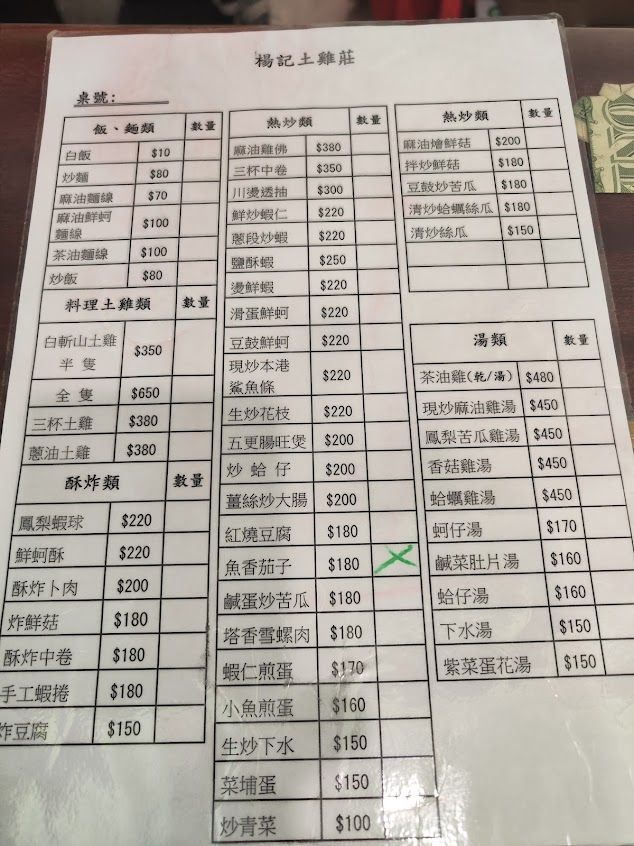 楊記土雞莊
桌號:
飯、麵類 數量
白飯 $10
炒麵 $80
麻油麵線 $70
麻油鮮蚵
麵線 $100
茶油麵線 $100
炒飯 $80
料理土雞類 數量
白斬山土雞
半隻 $350
全隻 $650
三杯土雞 $380
蔥油土雞 $380
酥炸類 數量
鳳梨蝦球 $220
鮮蚵酥 $220
酥炸卜肉 $200
炸鮮菇 $180
酥炸中卷 $180
手工蝦捲 $180
炸豆腐 $150
熱炒類 數量
麻油雞佛 $380
三杯中卷 $350
川燙透抽 $300
鮮炒蝦仁 $220
蔥段炒蝦 $220
鹽酥蝦 $250
燙鮮蝦 $220
滑蛋鮮蚵 $220
豆鼓鮮蚵 $220
現炒本港
鯊魚條 $220
生炒花枝 $220
五更腸旺煲 $200
炒蛤仔 $200
薑絲炒大腸 $200
紅燒豆腐 $180
魚香茄子 $180
鹹蛋炒苦瓜 $180
塔香雪螺肉 $180
蝦仁煎蛋 $170
小魚煎蛋 $160
生炒下水 $150
菜埔蛋 $150
炒青菜 $100
熱炒類 數量
麻油燴鮮菇 $200
拌炒鮮菇 $180
豆鼓炒苦瓜 $180
清炒蛤蠣絲瓜 $180
清炒絲瓜 $150
湯類 數量
茶油雞(乾/湯) $480
現炒麻油雞湯 $450
鳳梨苦瓜雞湯 $450
香菇雞湯 $450
蛤蠣雞湯 $450
蚵仔湯 $170
鹹菜肚片湯 $160
蛤仔湯 $160
下水湯 $150
紫菜蛋花湯 $150